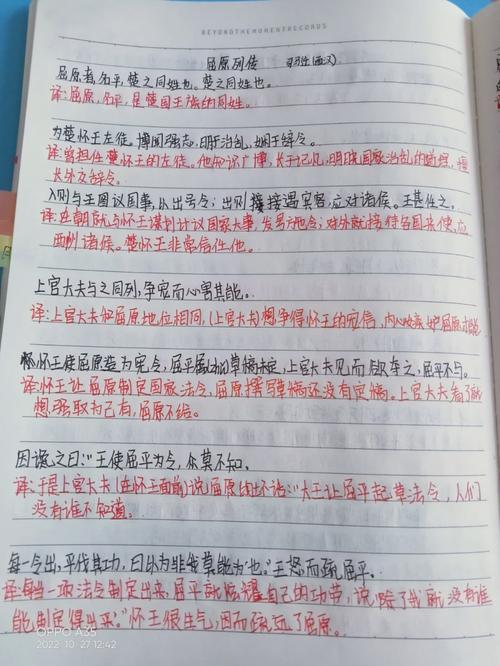 BEYONDTHEMOMENTRECORDS
屈原列传 司马迁(西汉)
屈原者,名平,楚之同姓也。楚之同姓也。
译:屈原,名平,是楚国王族的同姓。
为楚怀王左徒。博闻强志,明于治乱,娴于辞令。
译:曾担任楚怀王的左徒。他知识广博,长于记忆,明晓国家治乱的道理,擅
长外交辞令。
入则与王图议国事,以出号令;出则接接遇宾客,应对诸侯。王甚任之。
译:在朝就与怀王谋划计议国家大事,发号施令;对外就接待各国来使,应
酬诸侯。楚怀王非常信任他。
上官大夫与之同列,争宠而心害其能。
译:上官大夫和屈原地位相同,(上官大夫)想争得怀王的宠信,内心嫉妒屈原
怀王使屈原造为宪令,屈平属草稿未定,上官大夫见而欲夺之,屈平不与。
译:怀王让屈原制定国家法令,屈原撰写草稿还没有定稿。上官大夫看了就
想强取为己有,屈原不给。
因谗之曰:“王使屈平为令,众莫不知,
译:于是上官大夫(在怀王面前)说屈原的坏话:“大王让屈平起草法令,人们
没有谁不知道。
每一令出,平伐其功,曰以为‘非我莫能为’也。”王怒而疏屈平。
译:每当一项法令制定出来,屈平就炫耀自己的功劳,说‘除了我就没有谁
能制定得出来。”怀王很生气,因而疏远了屈原。
OPPO A35
2022-10-27 12:42